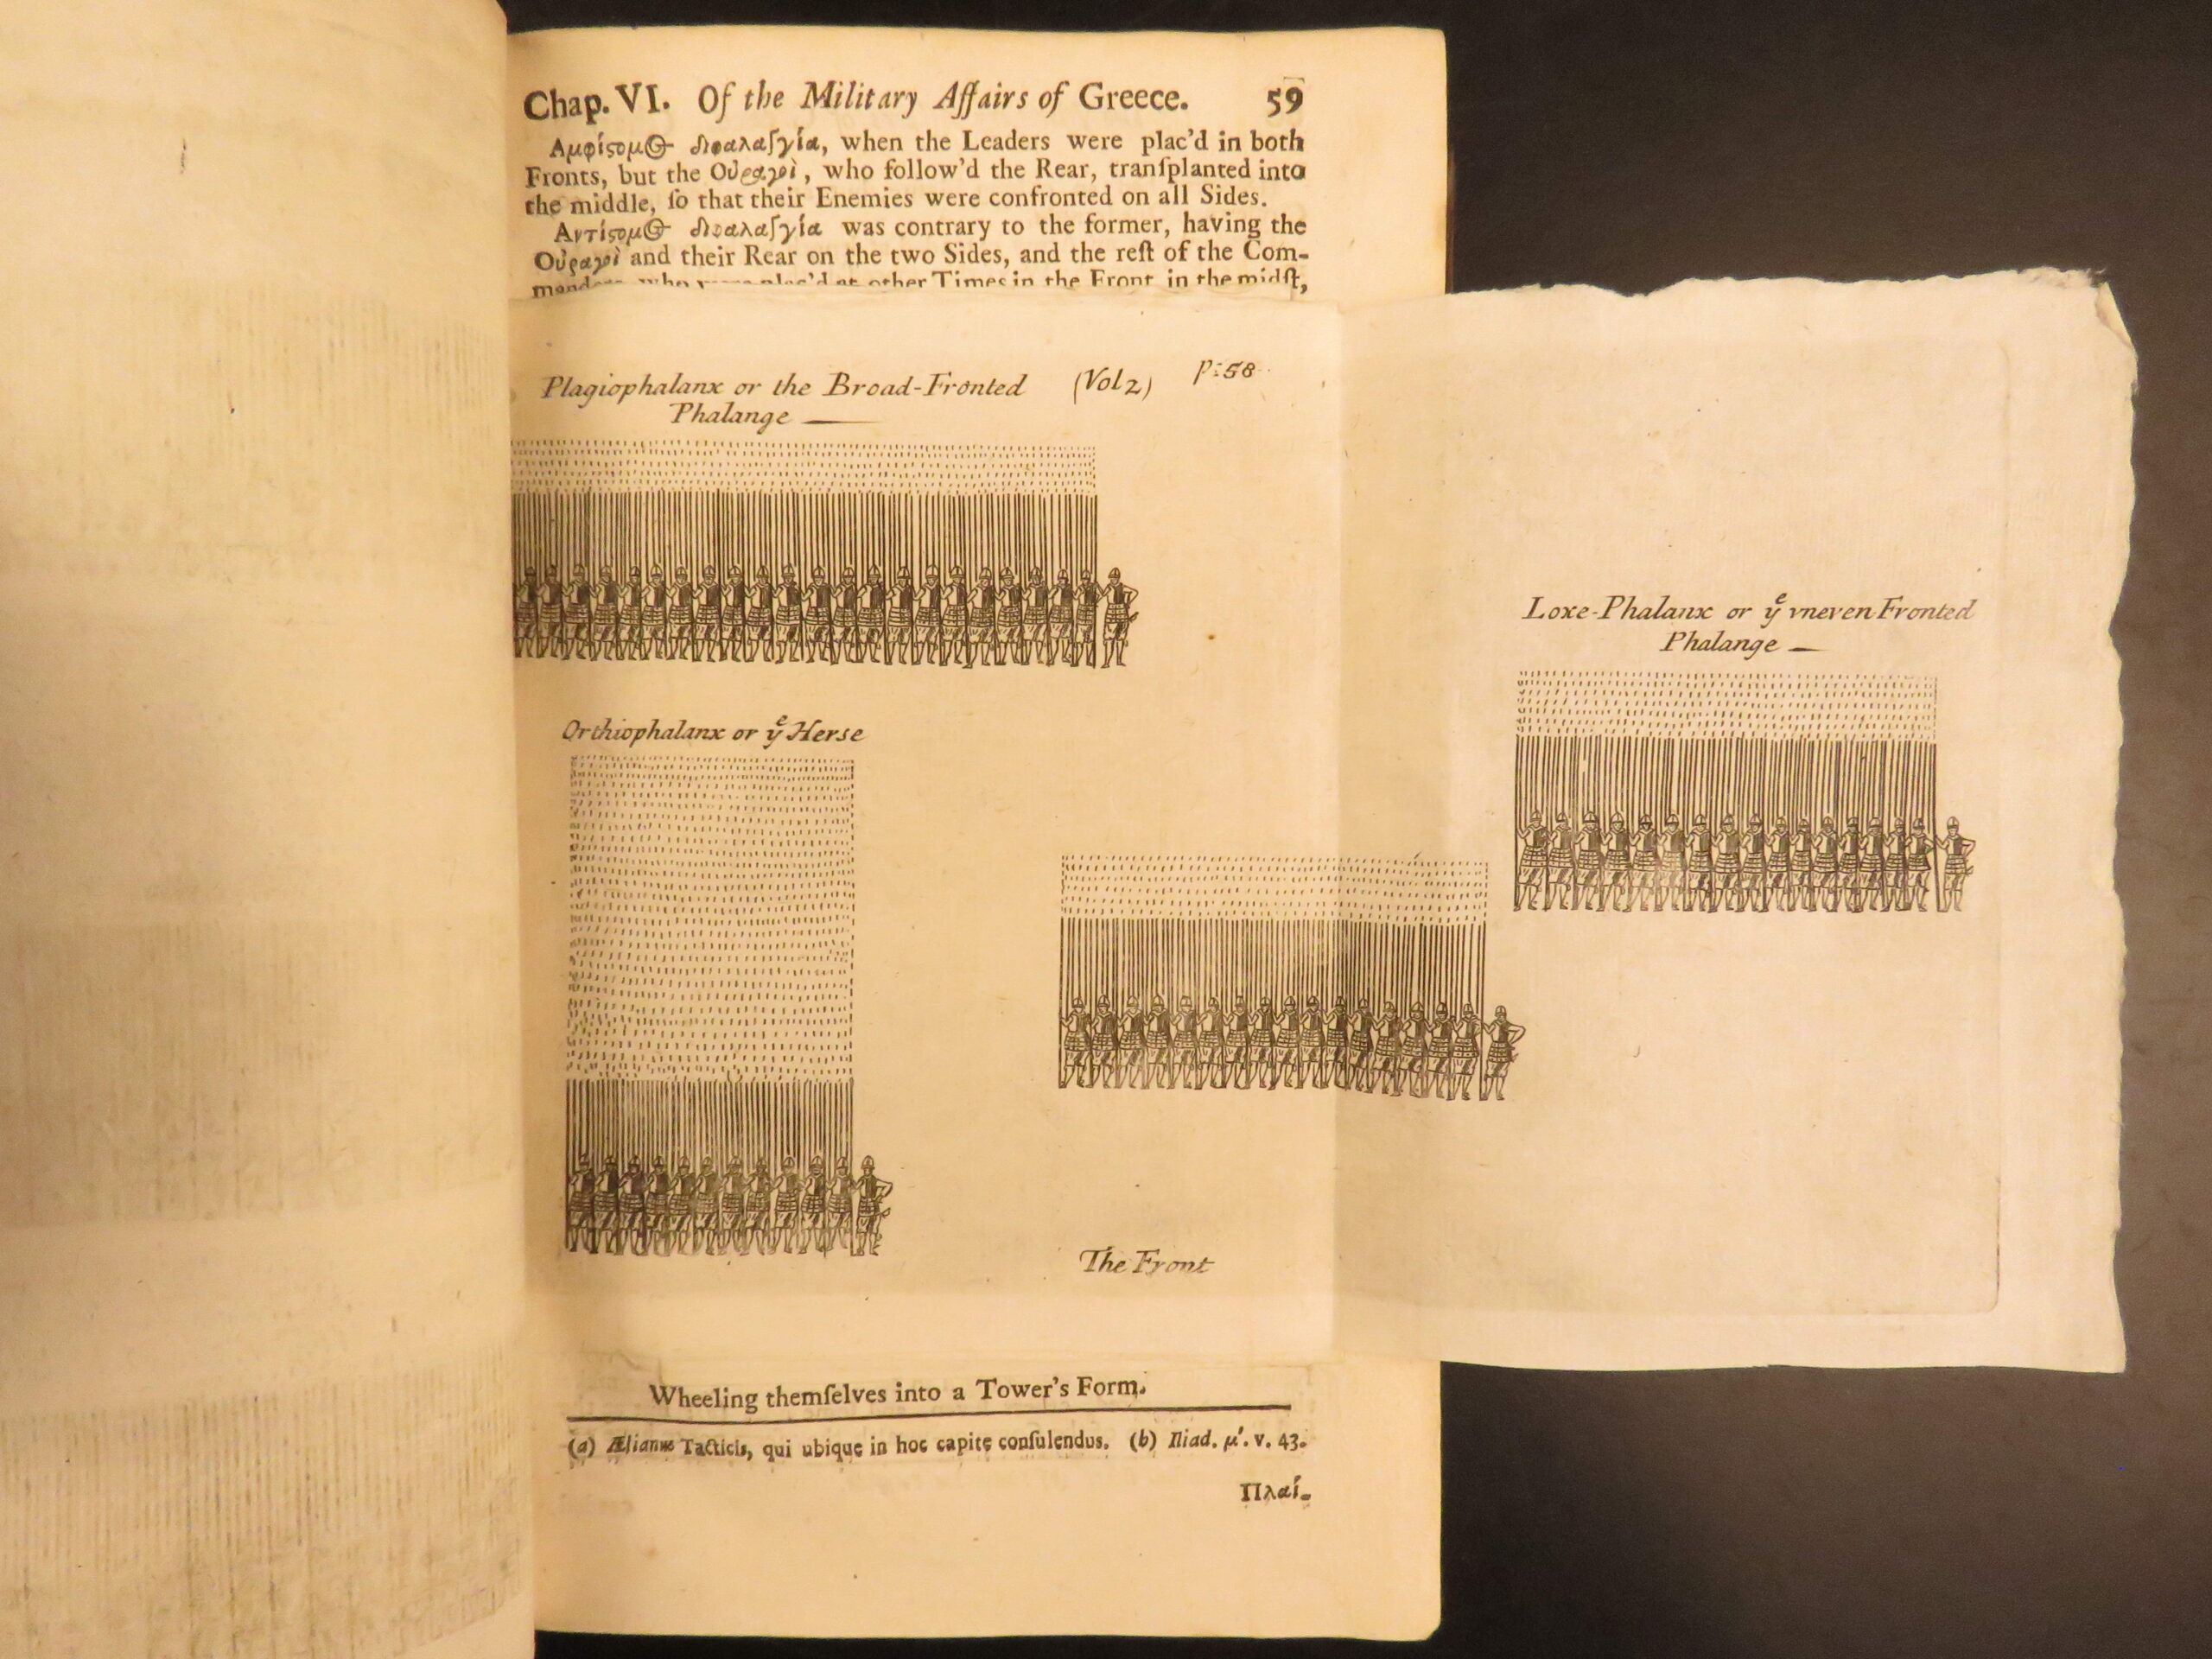 Chap. VI. Of the Military Affairs of Greece. 59
Αμφίςομ⊕ διφαλαγγία, when the Leaders were plac'd in both
Fronts, but the Οὐραγοὶ, who follow'd the Rear, tranſplanted into
the middle, ſo that their Enemies were confronted on all Sides.
Αντίςομ⊕ διφαλαγγία was contrary to the former, having the
Οὐραγοὶ and their Rear on the two Sides, and the reſt of the Com-
who were plac'd at other Times in the Front, in the midſt,
Plagiophalanx or the Broad-Fronted (Vol 2) p:58
Phalange
Loxe-Phalanx or yͤ vneven Fronted
Phalange
Orthiophalanx or yͤ Herse
The Front
Wheeling themſelves into a Tower's Form.
(a) Ælianus Tacticis, qui ubique in hoc capite conſulendus. (b) Iliad. μ'. v. 43.
Πλαί-